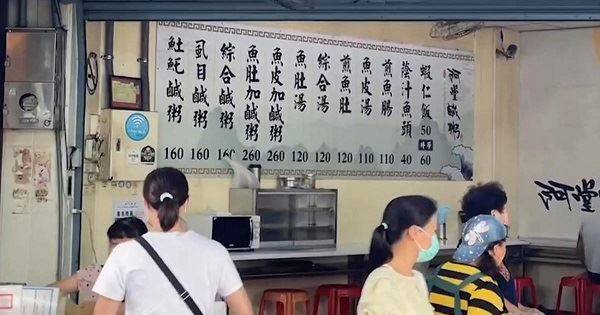 阿堂鹹粥
蝦仁飯 50 60
蔭汁魚頭 40
煎魚腸 110
魚皮湯 110
煎魚肚 120
綜合湯 120
魚肚湯 120
魚皮加鹹粥 260
魚肚加鹹粥 260
綜合鹹粥 160
虱目鹹粥 160
𩵚魠鹹粥 160
阿堂